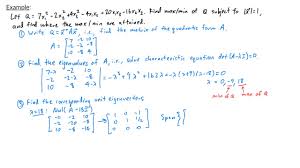 Example:
Let Q = 7x₁² - 2x₂² + 4x₃² - 4x₁x₂ + 20x₁x₃ - 16x₂x₃. Find max/min of Q subject to ‖x⃗‖=1,
and find where the max/min are attained.
① Write Q = x⃗ᵀAx⃗, i.e., find the matrix of the quadratic form A.
A = [7 -2 10
-2 -2 -8
10 -8 4]
② Find the eigenvalues of A, i.e., solve characteristic equation det(A-λI)=0.
|7-λ -2 10
-2 -2-λ -8
10 -8 4-λ| = -λ³+9λ²+162λ = -λ(λ+9)(λ-18) = 0
λ = 0, -9, 18
min of Q max of Q
③ Find the corresponding unit eigenvectors.
λ=18: Null(A-18I)
[-11 -2 10
-2 -20 -8
10 -8 -14] → [1 0 -1
0 1 1/2
0 0 0] Span { [